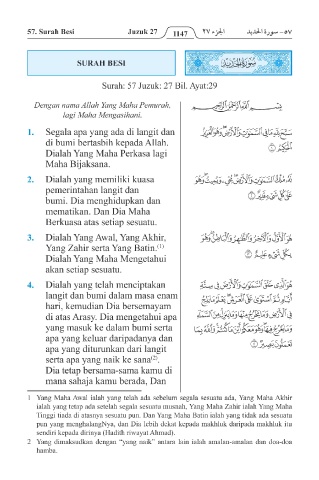 57. Surah Besi Juzuk 27 1147 الجزء ٢٧ سورة الحديد - ٥٧
SURAH BESI سُورَةُ الْحَدِيدِ
Surah: 57 Juzuk: 27 Bil. Ayat:29
Dengan nama Allah Yang Maha Pemurah,
lagi Maha Mengasihani.
بِسْمِ اللَّهِ الرَّحْمَٰنِ الرَّحِيمِ
1. Segala apa yang ada di langit dan
di bumi bertasbih kepada Allah.
Dialah Yang Maha Perkasa lagi
Maha Bijaksana.
سَبَّحَ لِلَّهِ مَا فِي السَّمَٰوَٰتِ وَالْأَرْضِ وَهُوَ الْعَزِيزُ
الْحَكِيمُ ١
2. Dialah yang memiliki kuasa
pemerintahan langit dan
bumi. Dia menghidupkan dan
mematikan. Dan Dia Maha
Berkuasa atas setiap sesuatu.
لَهُ مُلْكُ السَّمَٰوَٰتِ وَالْأَرْضِ يُحْيِي وَيُمِيتُ وَهُوَ
عَلَىٰ كُلِّ شَيْءٍ قَدِيرٌ ٢
3. Dialah Yang Awal, Yang Akhir,
Yang Zahir serta Yang Batin.(1)
Dialah Yang Maha Mengetahui
akan setiap sesuatu.
هُوَ الْأَوَّلُ وَالْآخِرُ وَالظَّٰهِرُ وَالْبَاطِنُ وَهُوَ
بِكُلِّ شَيْءٍ عَلِيمٌ ٣
4. Dialah yang telah menciptakan
langit dan bumi dalam masa enam
hari, kemudian Dia bersemayam
di atas Arasy. Dia mengetahui apa
yang masuk ke dalam bumi serta
apa yang keluar daripadanya dan
apa yang diturunkan dari langit
serta apa yang naik ke sana(2).
Dia tetap bersama-sama kamu di
mana sahaja kamu berada, Dan
هُوَ الَّذِي خَلَقَ السَّمَٰوَٰتِ وَالْأَرْضَ فِي سِتَّةِ
أَيَّامٍ ثُمَّ اسْتَوَىٰ عَلَى الْعَرْشِ يَعْلَمُ مَا يَلِجُ
فِي الْأَرْضِ وَمَا يَخْرُجُ مِنْهَا وَمَا يَنزِلُ مِنَ السَّمَاءِ
وَمَا يَعْرُجُ فِيهَا وَهُوَ مَعَكُمْ أَيْنَ مَا كُنتُمْ وَاللَّهُ بِمَا
تَعْمَلُونَ بَصِيرٌ ٤
1 Yang Maha Awal ialah yang telah ada sebelum segala sesuatu ada, Yang Maha Akhir
ialah yang tetap ada setelah segala sesuatu musnah, Yang Maha Zahir ialah Yang Maha
Tinggi tiada di atasnya sesuatu pun. Dan Yang Maha Batin ialah yang tidak ada sesuatu
pun yang menghalangNya, dan Dia lebih dekat kepada makhluk daripada makhluk itu
sendiri kepada dirinya (Hadith riwayat Ahmad).
2 Yang dimaksudkan dengan “yang naik” antara lain ialah amalan-amalan dan doa-doa
hamba.